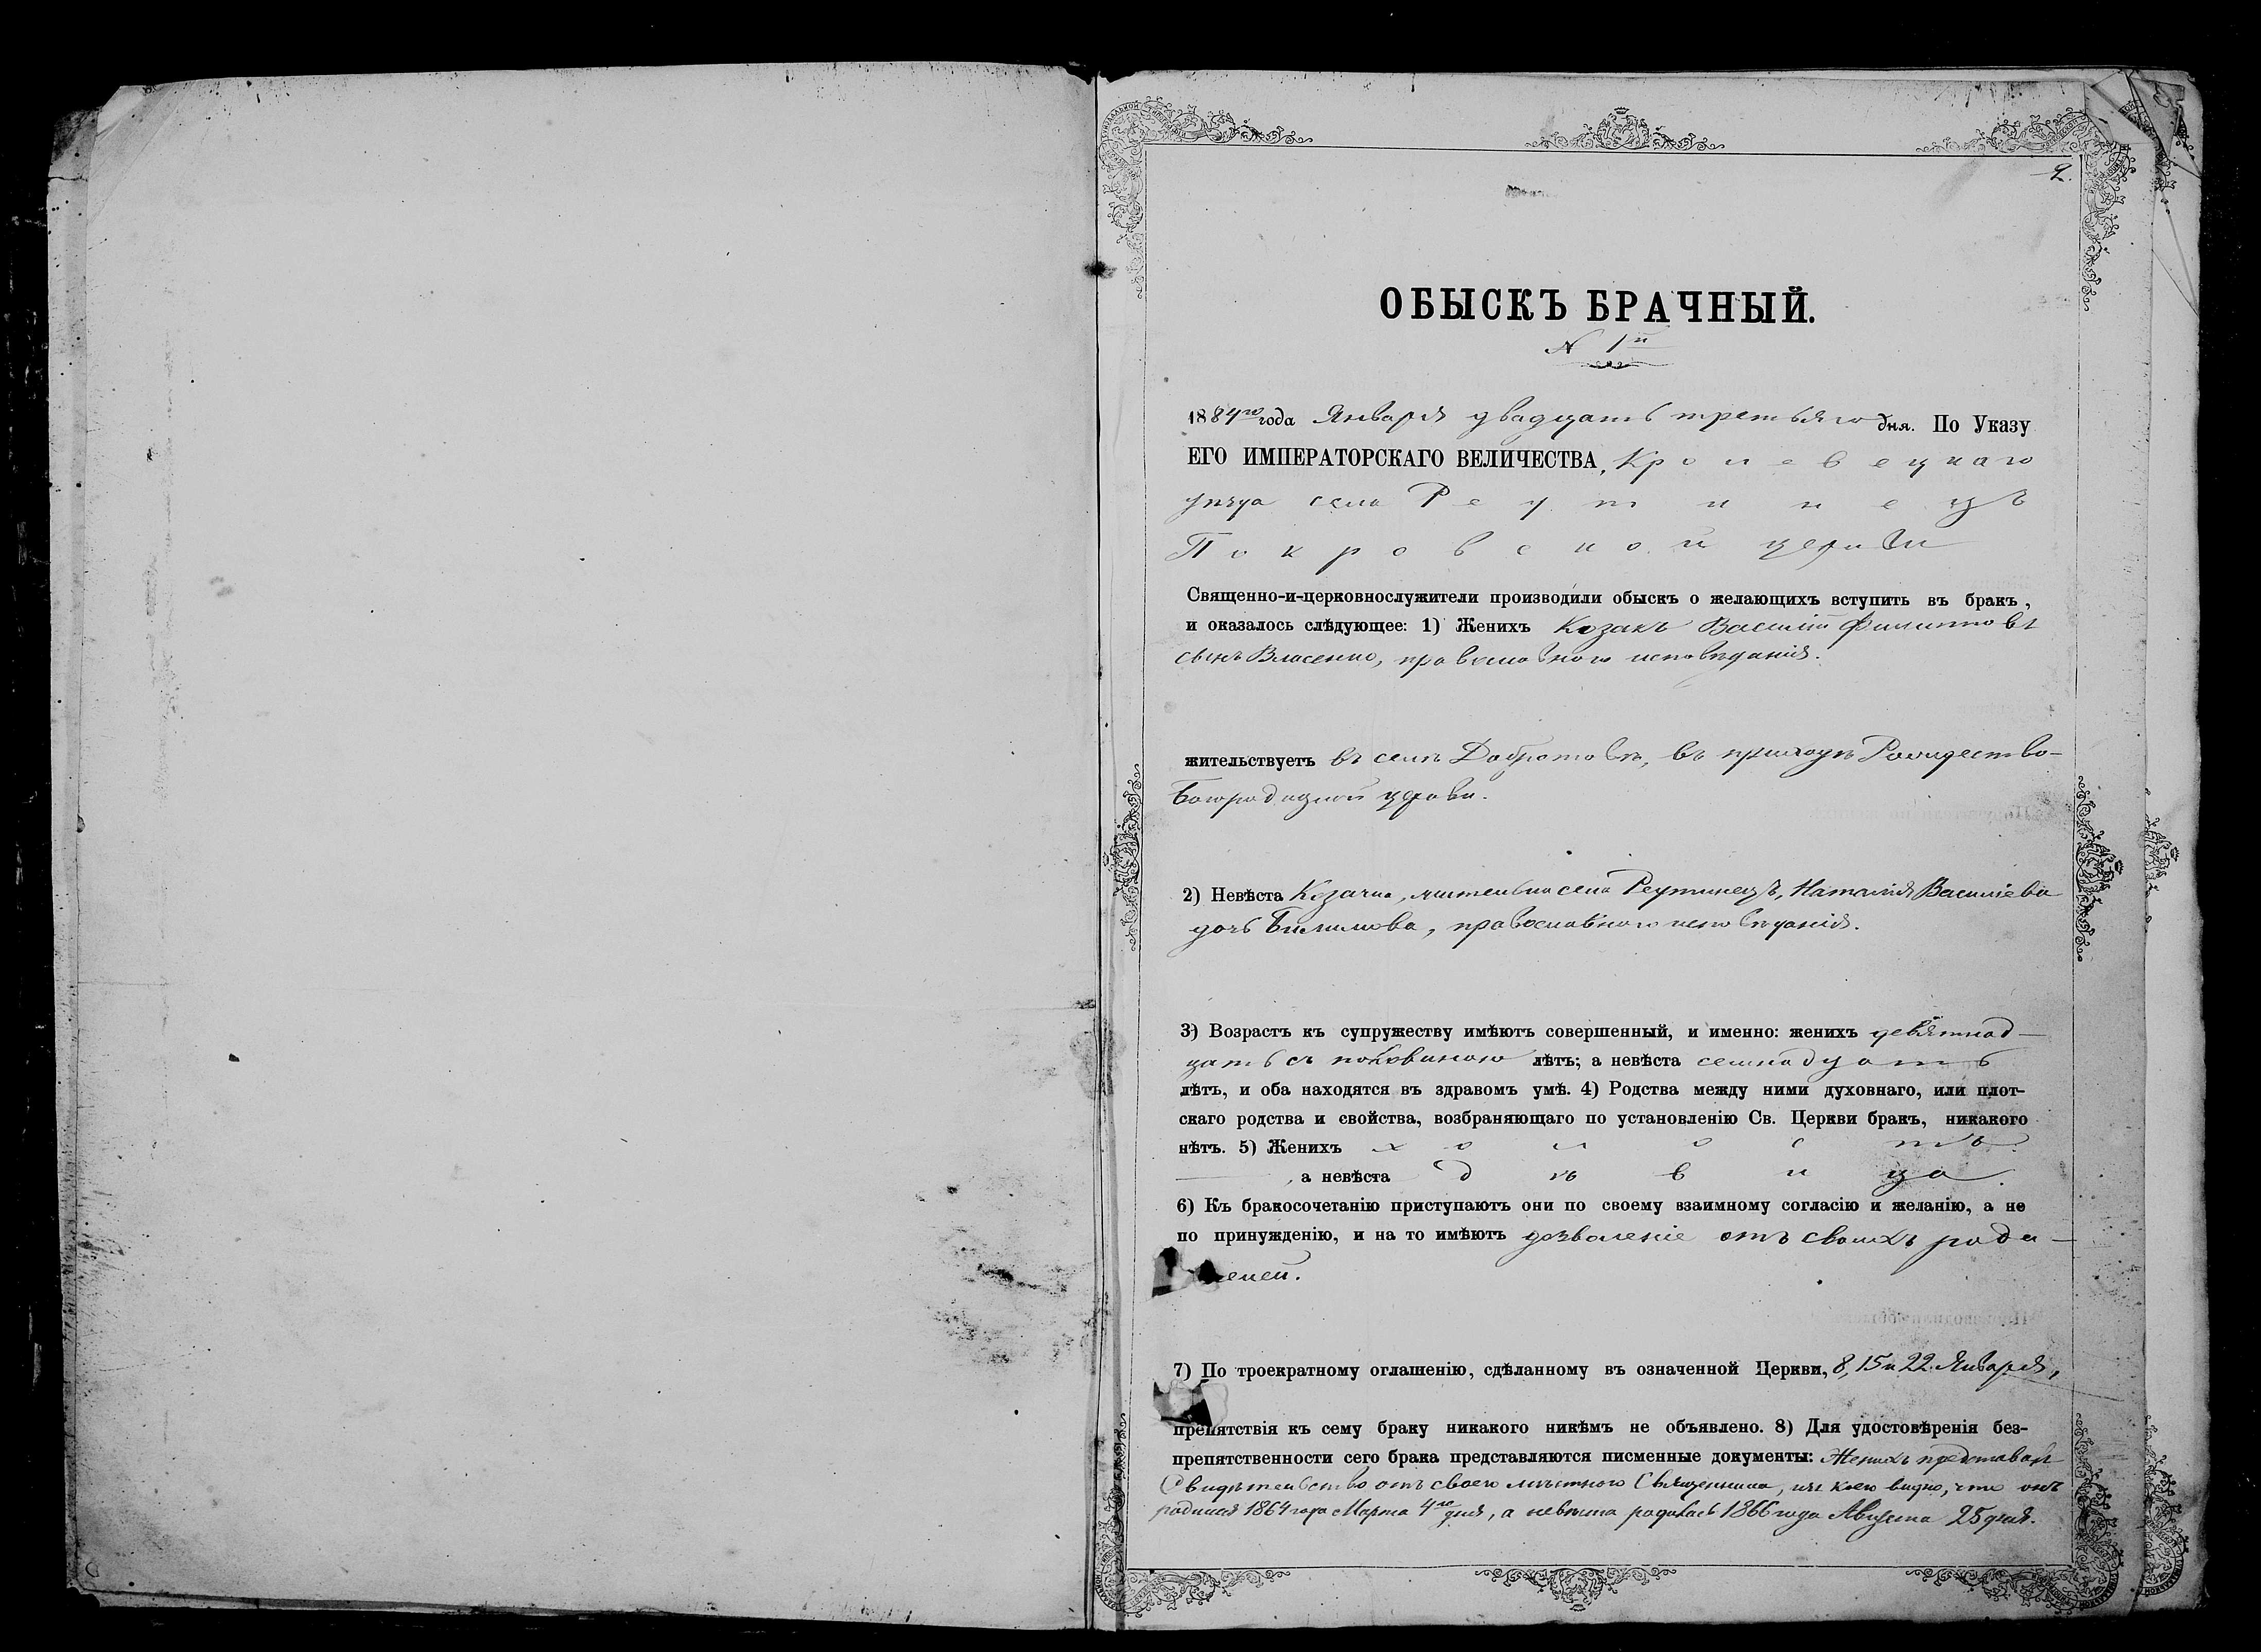 2.
ОБЫСКЪ БРАЧНЫЙ.
N 1й
1884го года Января двадцать третьяго дня. По Указу
ЕГО ИМПЕРАТОРСКАГО ВЕЛИЧЕСТВА, Кролевецкаго
уѣзда села Реутинецъ
Покровской церкви
Священно-и-церковнослужители производили обыскъ о желающихъ вступить въ бракъ,
и оказалось слѣдующее: 1) Женихъ Козакъ Василій Филипповъ
сынъ Власенко, православного исповѣданія.
жительствуетъ въ селѣ Добротовѣ, въ приходѣ Рождество-
Богородичной церкви.
2) Невѣста Козачка, жителька села Реутинецъ, Наталія Василіева
дочь Билимова, православного исповѣданія.
3) Возрастъ къ супружеству имѣютъ совершенный, и именно: женихъ девятнад-
цать съ половиною лѣтъ; а невѣста семнадцать
лѣтъ, и оба находятся въ здравомъ умѣ. 4) Родства между ними духовнаго, или плот-
скаго родства и свойства, возбраняющаго по установленію Св. Церкви бракъ, никакого
нѣтъ. 5) Женихъ холостъ
, а невѣста дѣвица.
6) Къ бракосочетанію приступаютъ они по своему взаимному согласію и желанію, а не
по принужденію, и на то имѣютъ дозволеніе отъ своихъ роди-
елей.
7) По троекратному оглашенію, сдѣланному въ означенной Церкви, 8, 15 и 22 Января,
препятствія къ сему браку никакого никѣмъ не объявлено. 8) Для удостовѣренія без-
препятственности сего брака представляются писменные документы: Женихъ представилъ
Свидѣтельство отъ своего мѣстного Священника, изъ коего видно, что онъ
родился 1864 года Марта 4го дня, а невѣста родилась 1866 года Августа 25 дня.